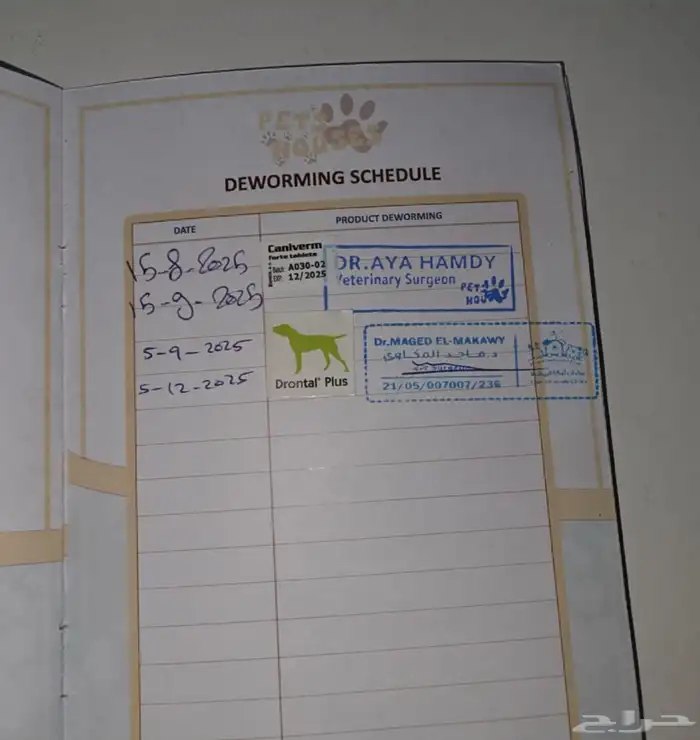 PETS
HOUSES
DEWORMING SCHEDULE
DATE
PRODUCT DEWORMING
15-8-2025
Caniverm
forte tablets
Batch: A030-02
EXP: 12/2025
DR.AYA HAMDY
Veterinary Surgeon
PETS
HOUSES
15-9-2025
5-9-2025
Drontal® Plus
Dr.MAGED EL-MAKAWY
د. ماجد المكاوي
21/05/007007/236
5-12-2025
حراج